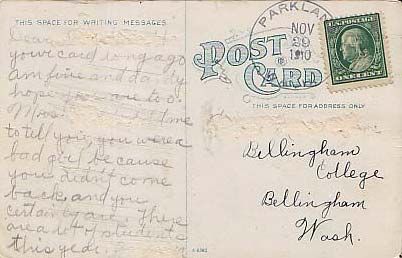 THIS SPACE FOR WRITING MESSAGES
Dear
your card long ago
am fine and
hope you are too
Mrs. me
to tell you, you were a
bad girl be cause
you didn't come
back and you
certainly are. There
are a lot of students
this year.
PARKLAND
NOV
29
1910
POST
CARD
U.S. POSTAGE
ONE CENT
THIS SPACE FOR ADDRESS ONLY
Bellingham
College
Bellingham
Wash.